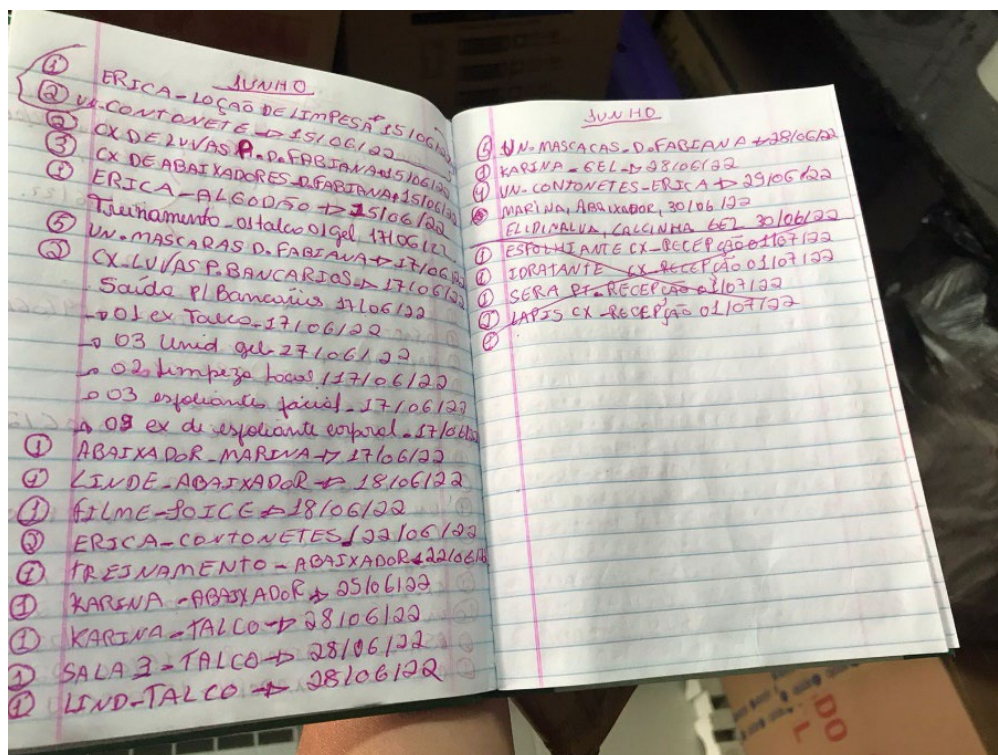 JUNHO
① ERICA-LOÇÃO DE LIMPESA 15/06/22
② UN-CONTONETE → 15/06/22
② CX DE LUVAS P. D. FABIANA → 15/06/22
③ CX DE ABAIXADORES-D. FABIANA → 15/06/22
① ERICA-ALGODÃO → 15/06/22
Treinamento-01 talco 01 gel 17/06/22
⑤ UN. MASCARAS D. FABIANA → 17/06/22
② CX. LUVAS P. BANCARIOS → 17/06/22
Saída P/ Bancários 17/06/22
→ 01 ex Talco-17/06/22
→ 03 Unid gel-27/06/22
→ 02 limpeza 17/06/22
→ 03 esfoliantes facial-17/06/22
→ ex de esfoliante corporal-17/06/22
① ABAIXADOR-MARINA → 17/06/22
① LINDE-ABAIXADOR → 18/06/22
① FILME-JOICE → 18/06/22
② ERICA-CONTONETES/22/06/22
① TREINAMENTO-ABAIXADOR → 22/06/22
① KARINA-ABAIXADOR → 25/06/22
① KARINA-TALCO → 28/06/22
① SALA 3-TALCO → 28/06/22
① LIND-TALCO → 28/06/22
JUNHO
⑤ UN. MASCACAS-D. FABIANA → 28/06/22
① KARINA-GEL → 28/06/22
④ UN-CONTONETES-ERICA → 29/06/22
MARINA, ABAIXADOR, 30/06/22
ELIDINALVA, CALCINHA GEL 30/06/22
① ESFOLHIANTE CX-RECEPÇÃO 01/07/22
① IDRATANTE CX-RECEPÇÃO 01/07/22
① SERA PT-RECEPÇÃO 01/07/22
① LAPIS CX-RECEPÇÃO 01/07/22
DO
L